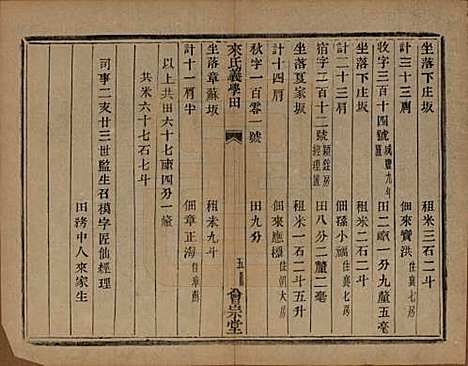 坐落下庄坂　租米三石二斗
計三十三肩　佃來寶洪
收字三百十四號　田二畝一分九釐五毫
坐落下庄坂　租米二石二斗
計二十三肩　佃孫小福
宿字二百十二號　田八分二釐二毫
坐落夏家坂　租米一石二斗五升
計十四肩　佃來應
秋字一百零一號　田九分
來氏義學田
會宗堂
坐落章蘇坂　租米九斗
計十一肩半　佃章正海
以上共田六十七畝四分一釐
共米六十七石七斗
司事二亥廿三世監生召模字匠仙經理
田務中人來家生